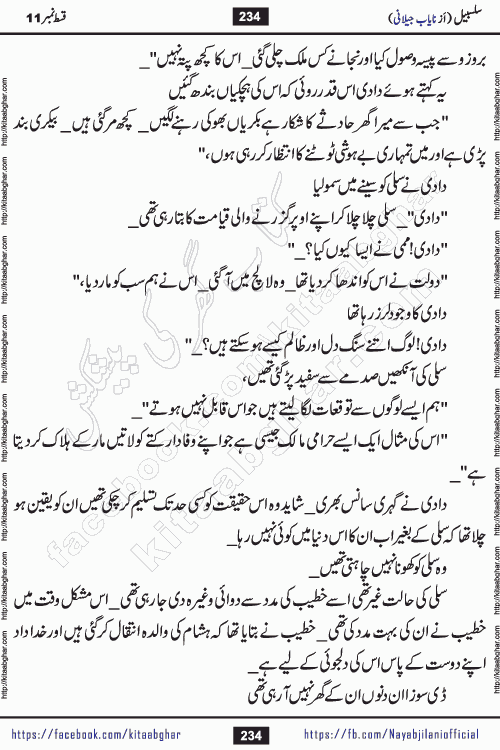 سلسبیل (از نایاب جیلانی) 234 قسط نمبر 11
بروزو سے پیسہ وصول کیا اور نجانے کس ملک چلی گئی_ اس کا کچھ پتہ نہیں"_
یہ کہتے ہوئے دادی اس قدر روئی کہ اس کی ہچکیاں بندھ گئیں
"جب سے میرا گھر حادثے کا شکار ہے بکریاں بھوکی رہنے لگیں_ کچھ مر گئی ہیں_ بیکری بند
پڑی ہے اور میں تمہاری بے ہوشی ٹوٹنے کا انتظار کر رہی ہوں،"
دادی نے سلی کو سینے میں سمو لیا
"دادی"_ سلی چلا چلا کر اپنے اوپر گزرنے والی قیامت کا بتا رہی تھی_
"دادی! ممی نے ایسا کیوں کیا؟_"
"دولت نے اس کو اندھا کر دیا تھا_ وہ لالچ میں آ گئی_ اس نے ہم سب کو مار دیا،"
دادی کا وجود لرز رہا تھا
دادی! لوگ اتنے سنگ دل اور ظالم کیسے ہو سکتے ہیں؟_"
سلی کی آنکھیں صدمے سے سفید پڑ گئی تھیں،
"ہم ایسے لوگوں سے توقعات لگا لیتے ہیں جو اس قابل نہیں ہوتے"_
"اس کی مثال ایک ایسے حرامی مالک جیسی ہے جو اپنے وفادار کتے کو لاتیں مار کے ہلاک کر دیتا
ہے"_
دادی نے گہری سانس بھری_ شاید وہ اس حقیقت کو کسی حد تک تسلیم کر چکی تھیں ان کو یقین ہو
چلا تھا کہ سلی کے بغیر اب ان کا اس دنیا میں کوئی نہیں رہا_
وہ سلی کو کھونا نہیں چاہتی تھیں_
سلی کی حالت غیر تھی اسے خطیب کی مدد سے دوائی وغیرہ دی جا رہی تھی_ اس مشکل وقت میں
خطیب نے ان کی بہت مدد کی تھی_ خطیب نے بتایا تھا کہ ہشام کی والدہ انتقال کر گئی ہیں اور خداداد
اپنے دوست کے پاس اس کی دلجوئی کے لیے ہے_
ڈی سوزا ان دنوں ان کے گھر نہیں آ رہی تھی
کتاب گھر کی پیشکش
facebook.com/kitaabghar
kitaabghar.com
http://kitaabghar.com
https://facebook.com/kitaabghar 234 https://fb.com/Nayabjilaniofficial